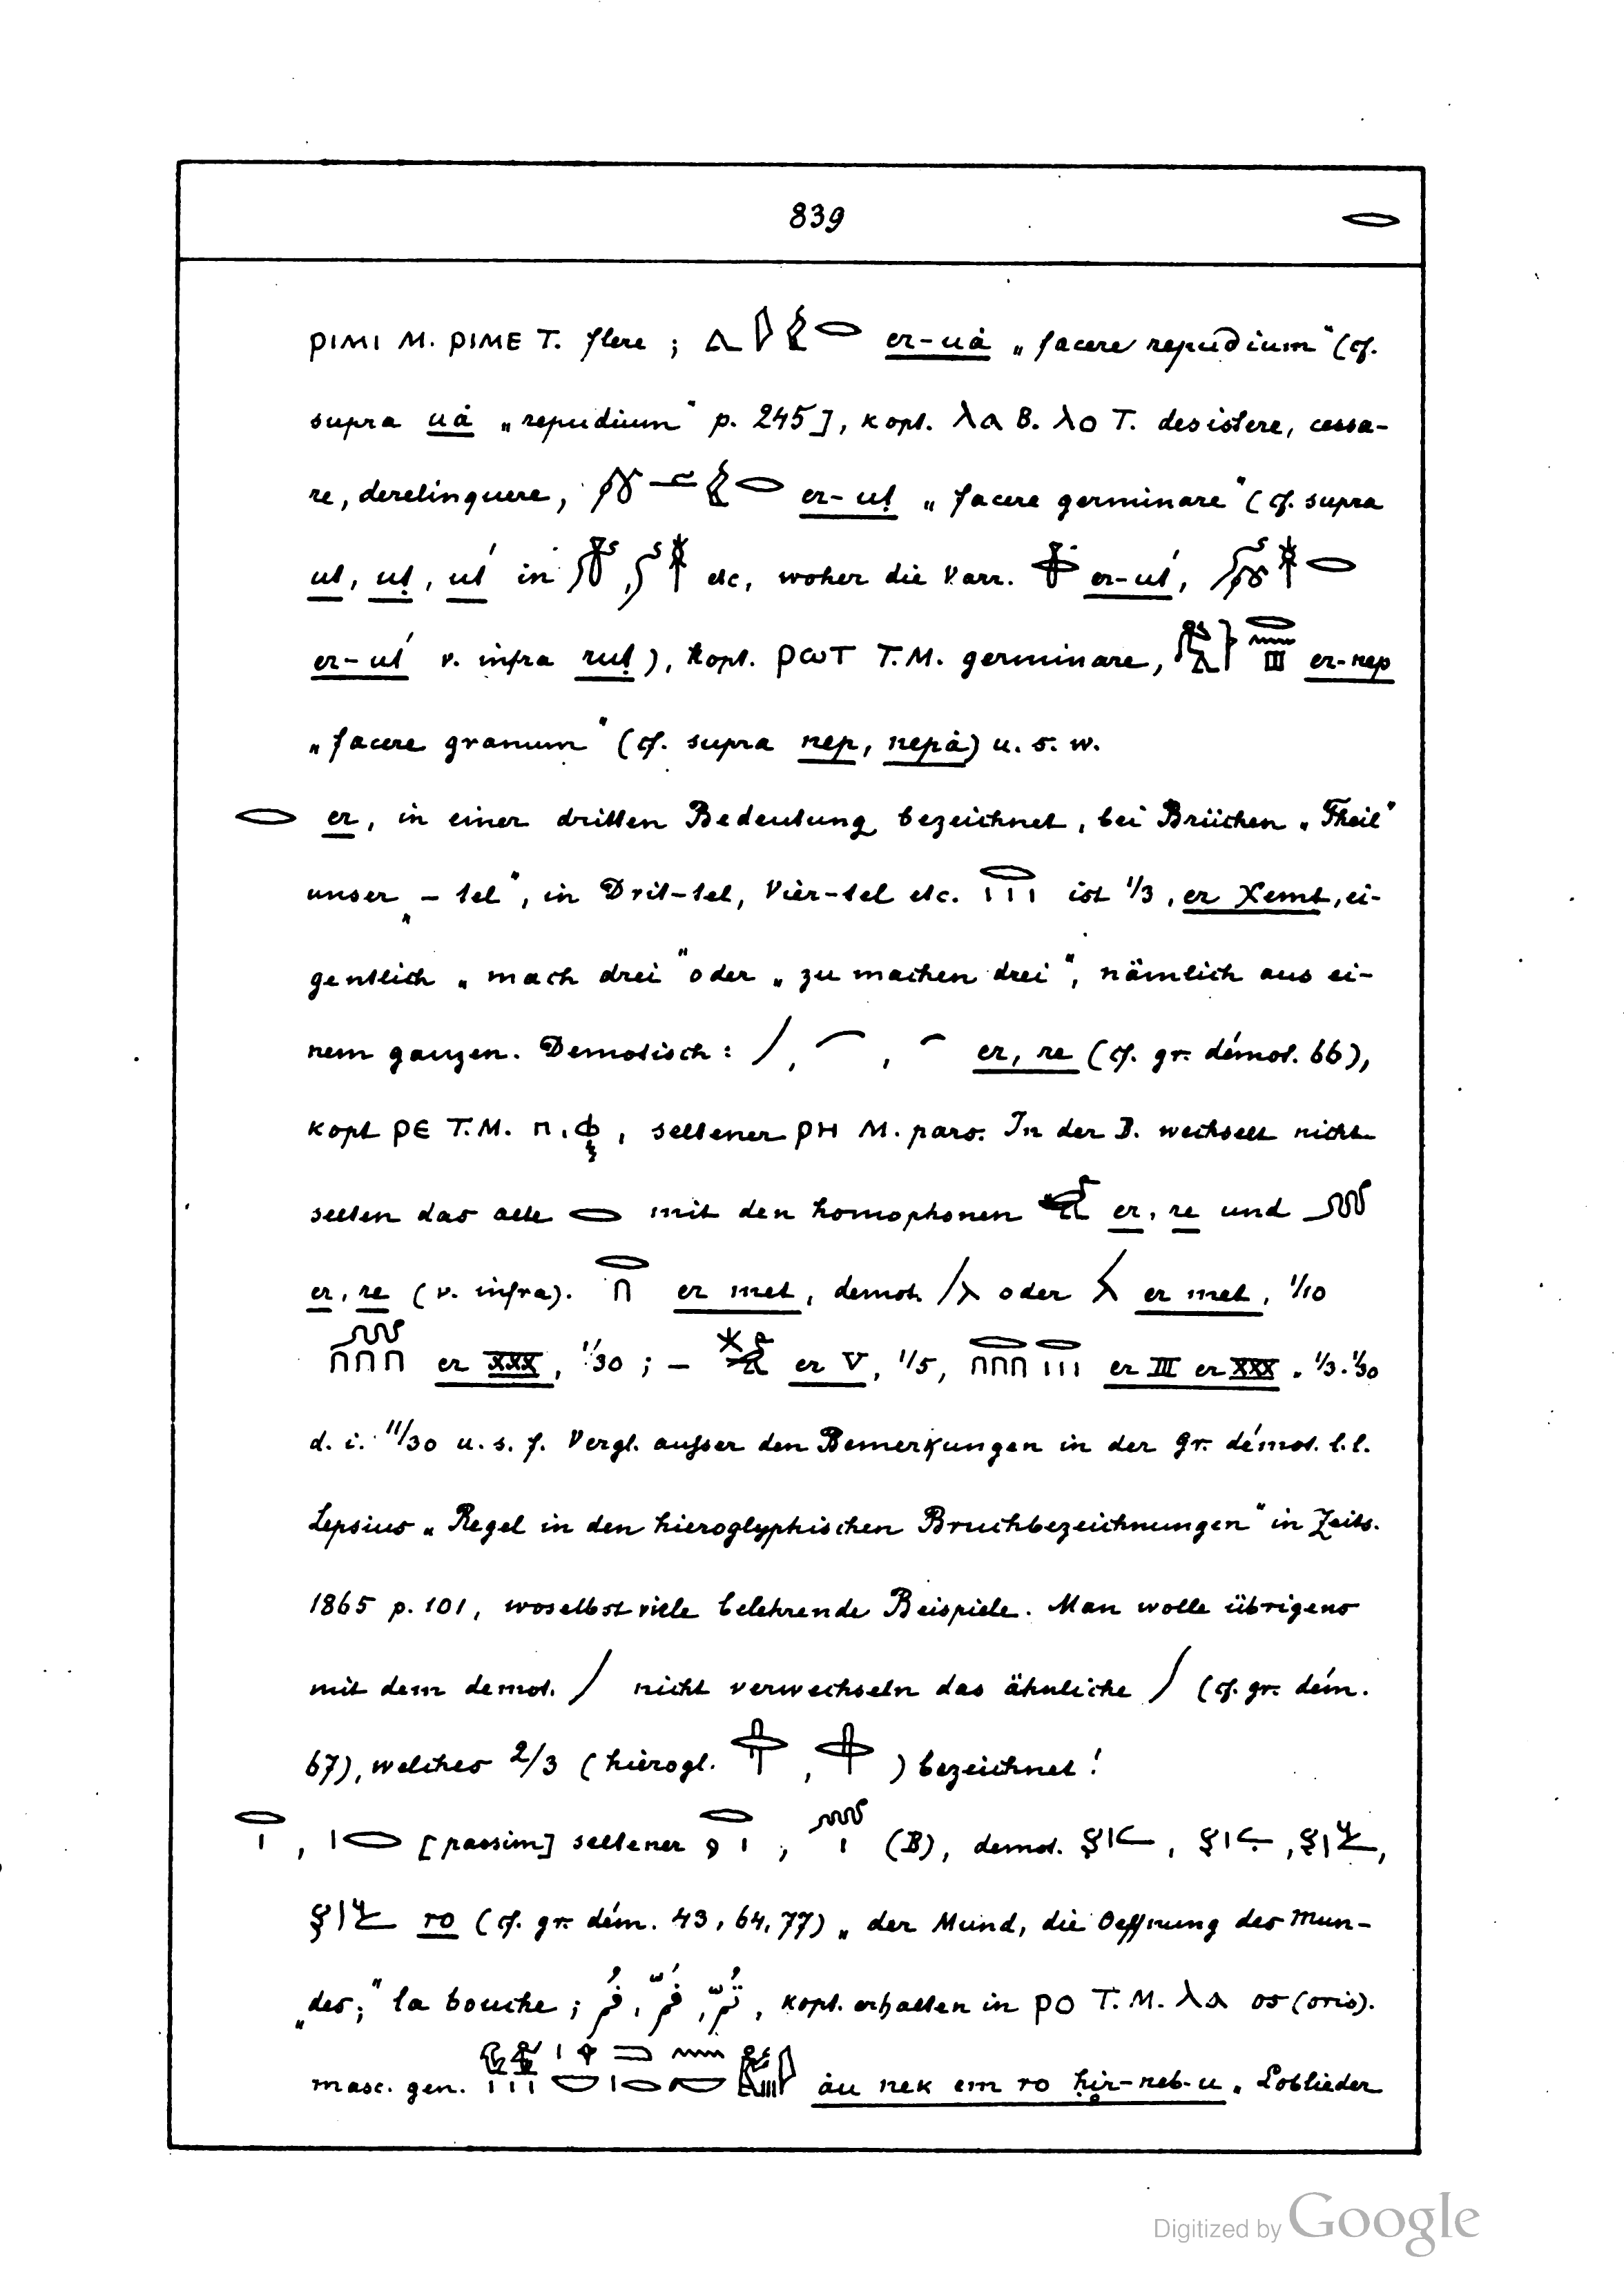 839 𓂋
ⲣⲓⲙⲓ M. ⲣⲓⲙⲉ T. flere ; er-uȧ „facere repudium“ (cf.
supra uȧ „repudium“ p. 245], kopt. ⲗⲁ B. ⲗⲟ T. desistere, cessa-
re, derelinquere, er-uṭ „facere germinare“ (cf. supra
ut, uṭ, ut́ in etc, woher die Varr. er-ut́,
er-ut́ v. infra ruṭ), kopt. ⲣⲱⲧ T.M. germinare, er-nep
„facere granum“ (cf. supra nep, nepȧ) u. s. w.
𓂋 er, in einer dritten Bedeutung bezeichnet, bei Brüchen „Theil“
unser „-tel“, in Drit-tel, Vier-tel etc. ist 1/3, er χemt, ei-
gentlich „mach drei“ oder „zu machen drei“, nämlich aus ei-
nem ganzen. Demotisch: er, re (cf. gr. démot. 66),
kopt ⲣⲉ T.M. ⲡ, ⲫ, seltener ⲣⲏ M. pars. In der B. wechselt nicht
selten das alte 𓂋 mit den homophonen er, re und
er, re (v. infra). er met, demot. oder er met, 1/10
er XXX, 1/30 ; – er V, 1/5, er III er XXX „ 1/3. 1/30
d. i. 11/30 u. s. f. Vergl. aufser den Bemerkungen in der Gr. démot. l. l.
Lepsius „Regel in den hieroglyphischen Bruchbezeichnungen“ in Zeits.
1865 p. 101, woselbst viele belehrende Beispiele. Man wolle übrigens
mit dem demot. / nicht verwechseln das ähnliche / (cf. gr. dém.
67), welches 2/3 (hierogl. , ) bezeichnet!
, [passim] seltener ; (B), demot.
ro (cf. gr. dém. 43, 64, 77) „der Mund, die Oeffnung des Mun-
„des;“ la bouche ; فُم, فُمّ, ثُمّ, kopt. erhalten in ⲣⲟ T. M. ⲗⲁ os (oris).
masc. gen. ȧu nek em ro ḥir-neb-u „Loblieder
Digitized by Google